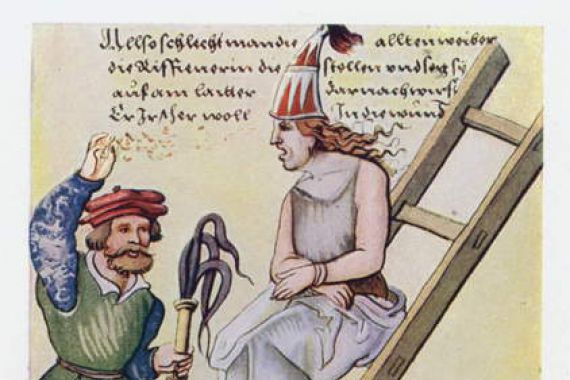 Allso schlecht man die allten weiber
die Riffienerin die stellen und sez sy
auf ain laitter darnach wirft
Er Ir sher woll In die wund